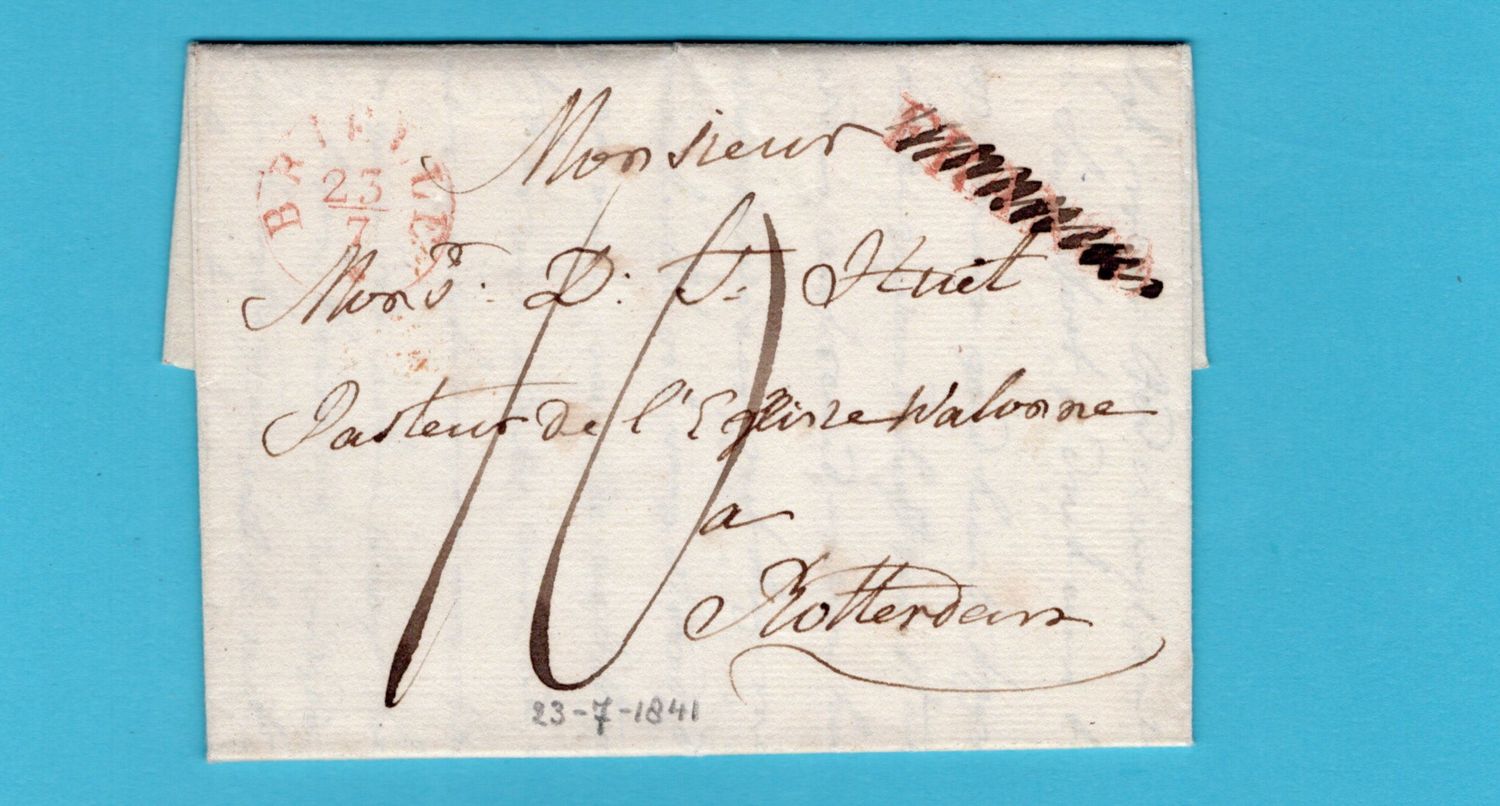 BRIELLE
23
7
Monsieur
Monsr. D: T: Huët
Pasteur de l'Eglise Walonne
a
Rotterdam
10
23-7-1841